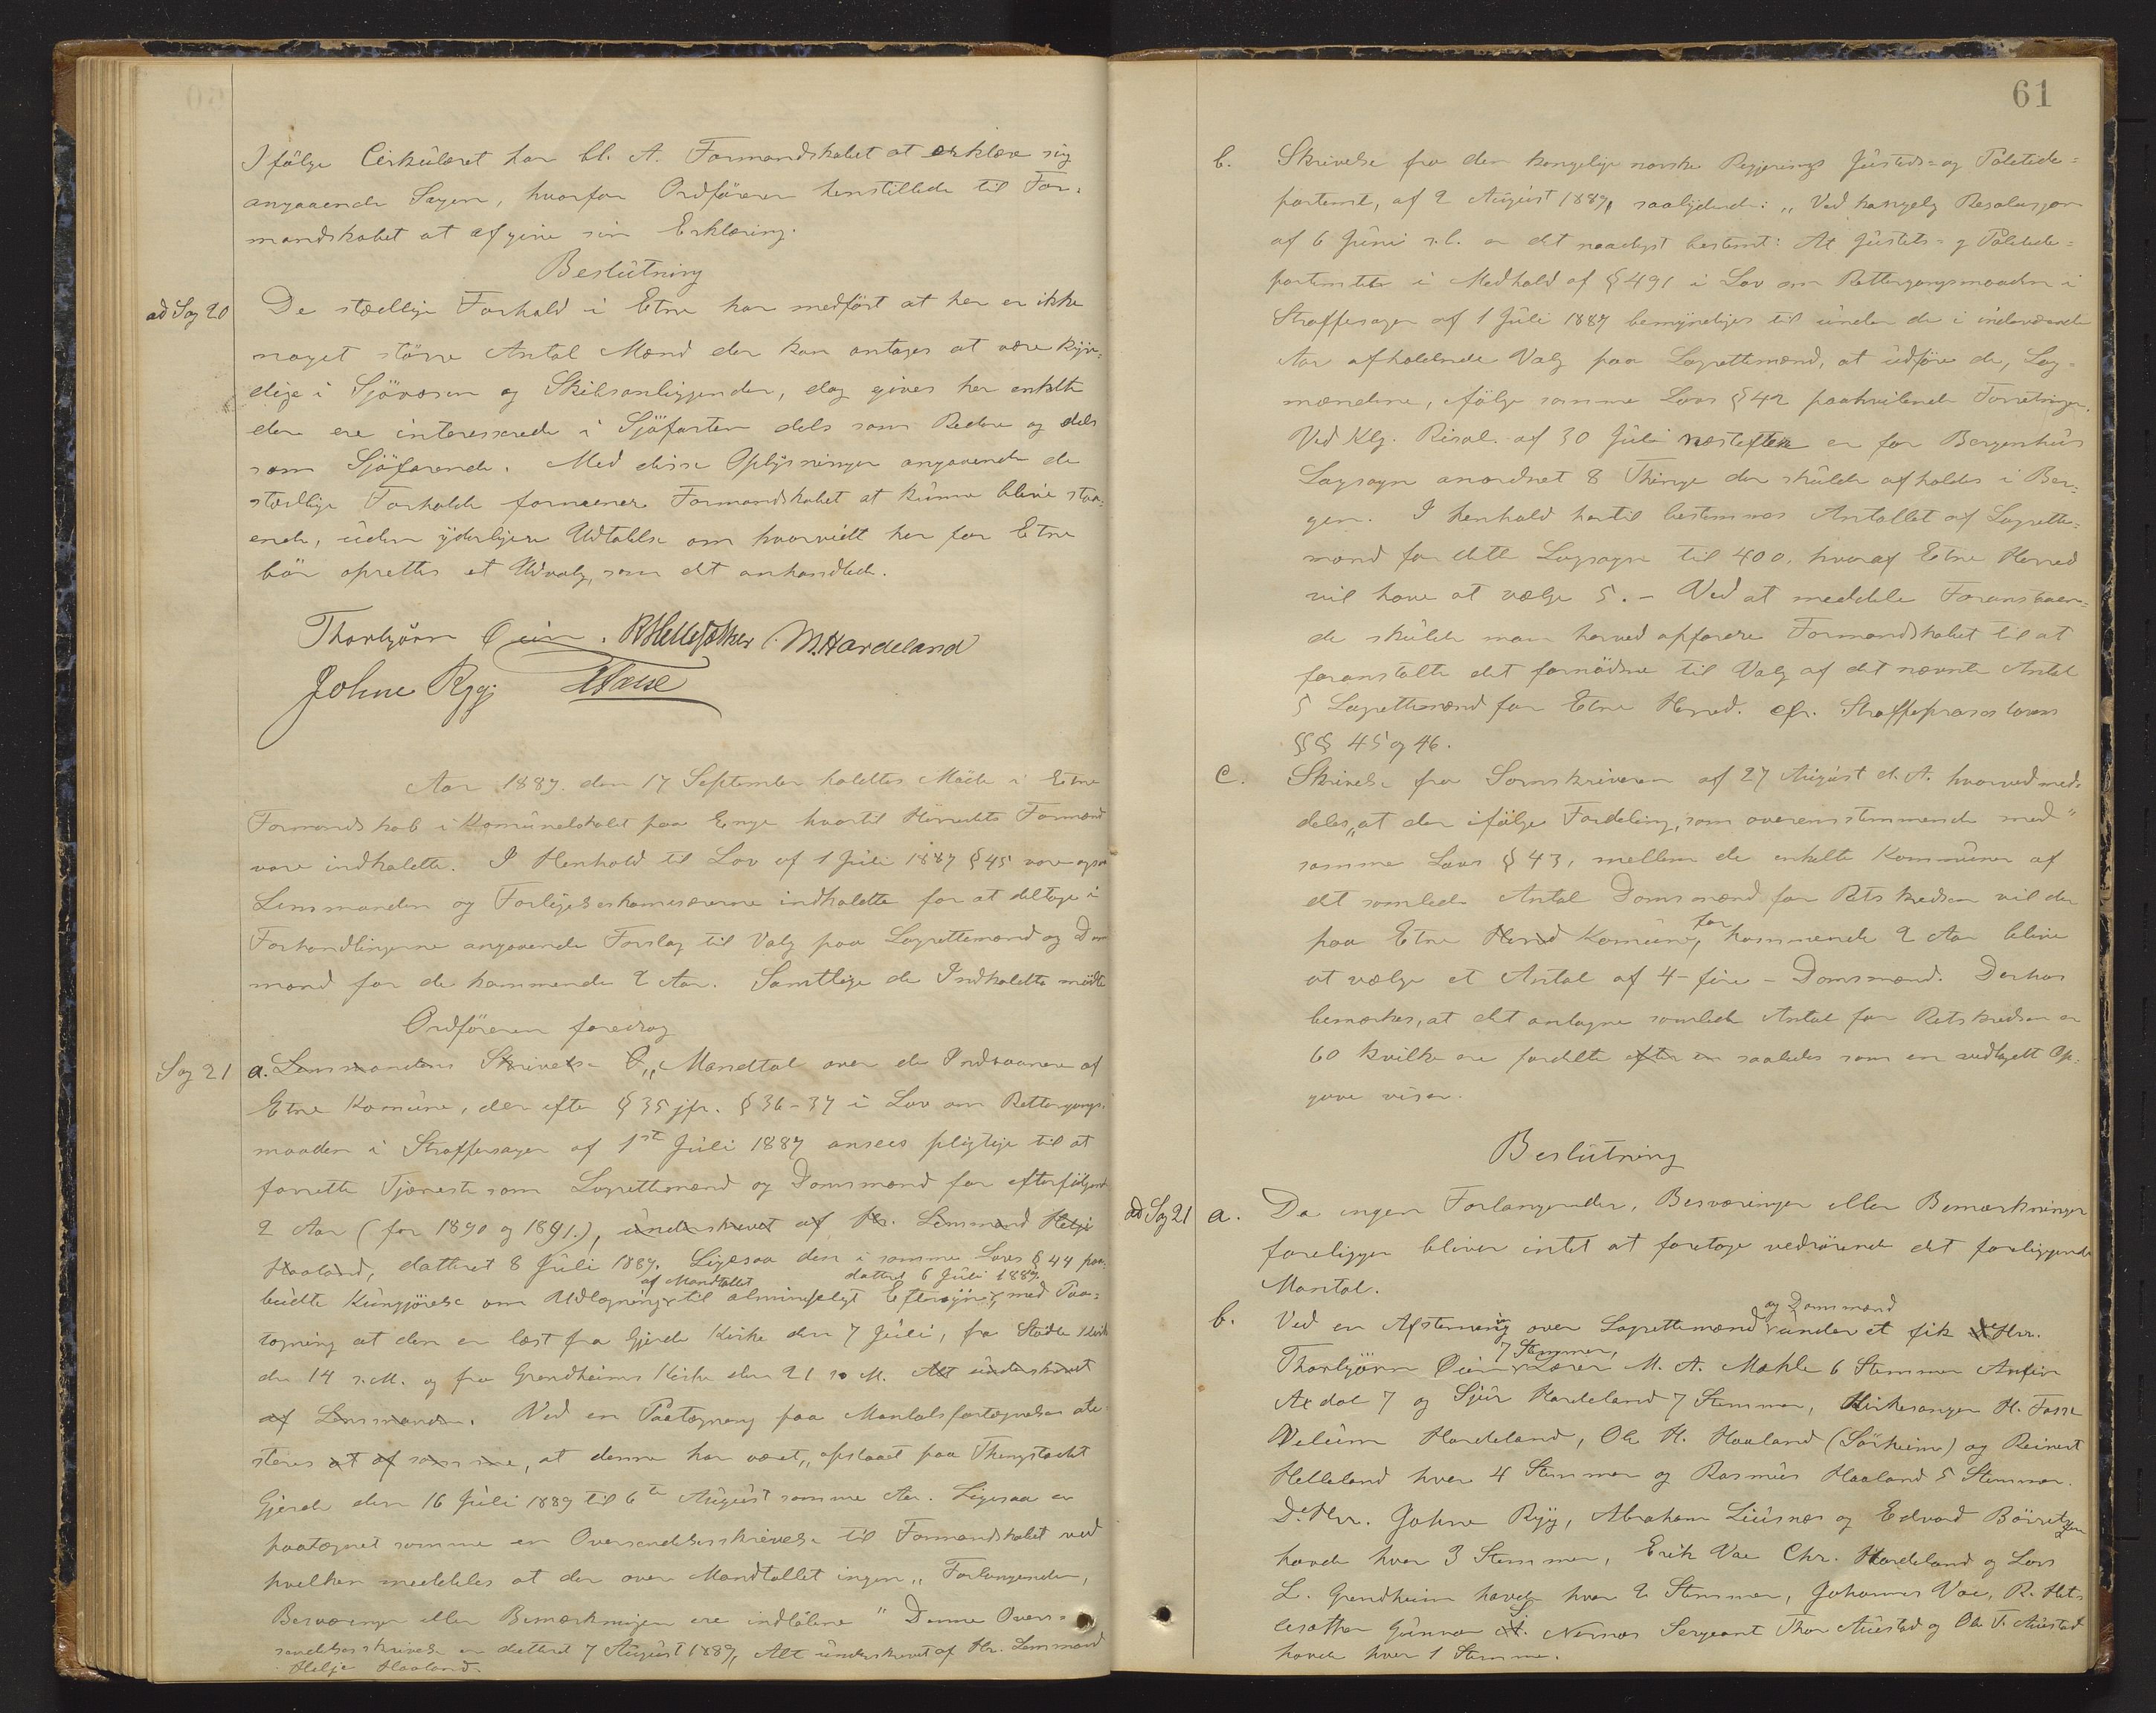 Ifølge Cirkulæret har bl. A. Formandskabet at erklære sig
angaaende Sagen, hvorfor Ordføreren henstillede til For-
mandskabet at afgive sin Erklæring.
Beslutning
ad Sag 20
De stædlige Forhold i Etne har medført at her er ikke
noget større Antal Mænd der kan antages at være kyn-
dige i Sjøvæsen og Skibsanliggender, dog gives her enkelte
der ere interesserede i Sjøfarten dels som Redere og dels
som Sjøfarende. Med disse Oplysninger angaaende de
stædlige Forholde formener Formandskabet at kunne blive staa-
ende, uden yderligere Udtalelse om hvorvidt her for Etne
bør oprettes et Udvalg, som det anhandlede.
Thorbjørn Øien. R Hellesæther M. Hardeland
Johne Rygg HFasse
Aar 1889 den 17 September holdtes Møde i Etne
Formandskab i Komunelokalet paa Enge hvortil Herredets Formænd
vare indkaldte. I Henhold til Lov af 1 Juli 1887 § 45 vare ogsaa
Lensmanden og Forligelseskomisærerne indkaldte for at deltage i
Forhandlingerne angaaende Forslag til Valg paa Lagrettemænd og Dom
mænd for de kommende 2 Aar. Samtlige de Indkaldte mødte
Ordføreren foredrog
Sag 21
a. Lensmandens Skrivelse „Mandtal over de Indvaanere af
Etne Komune, der efter § 35 jfr. § 36-37 i Lov om Rettergangs-
maaden i Straffesager af 1st Juli 1887 ansees pligtige til at
forrette Tjæneste som Lagrettemænd og Domsmænd for efterfølgende
2 Aar (for 1890 og 1891.), underskrevet af Hr. Lensmand Helje
Haaland, datteret 8 Juli 1889. Ligesaa den i samme Lovs § 44 paa-
af Mandtallet datteret 6 Juli 1889.
budte Kungjørelse om Udlægning til almindeligt Eftersyn, med Paa-
tegning at den er læst fra Gjerde Kirke den 7 Juli, fra Stødle Kirke
den 14 s. M. og fra Grendheims Kirke den 21 s. M. Alt underskrevet
af Lensmanden. Ved en Paategning paa Mantalsfortegnelsen ate-
steres at af samme, at denne har været „opslaaet paa Thingstedet
Gjerde den 16 Juli 1889 til 6te August samme Aar. Ligesaa er
paategnet samme en Oversendelsesskrivelse til Formandskabet ved
hvilken meddeles at der over Mandtallet ingen „Forlangender,
Besværinger eller Bemærkninger ere indløbne" Denne Overs-
sendelsesskrivelse er datteret 7 August 1889, Alt underskrevet af Hr. Lensmand
Helje Haaland.
61
b. Skrivelse fra den kongelige norske Regjerings Justeds- og Politide-
partement, af 2 August 1889, saalydende: „Ved kongelig Resolusjon
af 6 Juni s.l. er det naadigst bestemt: At Justets- og Politide-
partementet i Medhold af § 491 i Lov om Rettergangsmaaden i
Straffesager af 1 Juli 1887 bemyndiges til under de i indeværende
Aar afholdende Valg paa Lagrettemænd, at udføre de, Lag-
mændene, ifølge samme Lovs § 42 paahvilende Forretninger.
Ved Klg. Resol. af 30 Juli næstefter er for Bergenhus
Lagsogn anordnet 8 Thinge der skulde afholdes i Ber-
gen. I henhold hertil bestemmes Antallet af Lagrette-
mænd for dette Lagsogn til 400, hvoraf Etne Herred
vil have at vælge 5. – Ved at meddele Foranstaaen-
de skulde man herved opfordre Formandskabet til at
foranstalte det fornødne til Valg af det nævnte Antal
5 Lagrettemænd for Etne Herred. cfr. Straffeproseslovens
§§ 45 og 46.
c. Skrivelse fra Sorenskriveren af 27 August d. A. hvorved med-
deles, „at der ifølge Fordeling, som overensstemmende med"
samme Lovs § 43, mellem de enkelte Kommuner af
det samlede Antal Domsmænd for Retskredsen vil der
paa Etne Herred Komune, for kommende 2 Aar blive
at vælge et Antal af 4 – fire – Domsmænd. Derhos
bemærkes, at det antagne samlede Antal for Retskredsen er
60 hvilke ere fordelte efter en saaledes som en vedlagdt Op-
gave viser.
Beslutning
ad Sag 21
a. Da ingen Forlangender, Besværinger eller Bemærkninger
foreligger bliver intet at foretage vedrørende det foreliggende
Mantal.
og Domsmænd
b. Ved en Afstemning over Lagrettemænd under et fik Hrr.
7 Stemmer,
Thorbjørn Øien Lærer M. A. Mæhle 6 Stemmer Anfin
Axdal 7 og Sjur Hardeland 7 Stemmer, Kirkesanger H. Fasse
Velum Hardeland, Ole H. Haaland (Sørheim) og Reinert
Helleland hver 4 Stemmer og Rasmus Haaland 5 Stemmer.
D'Hrr. Johne Rygg, Abraham Liusnæs og Edvard Børretzen
havde hver 3 Stemmer, Erik Vae Chr. Hardeland og Lars
L. Grendheim havde hver 2 Stemmer, Johannes Vae, R. Hel-
lesæther Gunnar Nernæs Sergeant Thor Austad og Ole T. Austad
havde hver 1 Stemme.